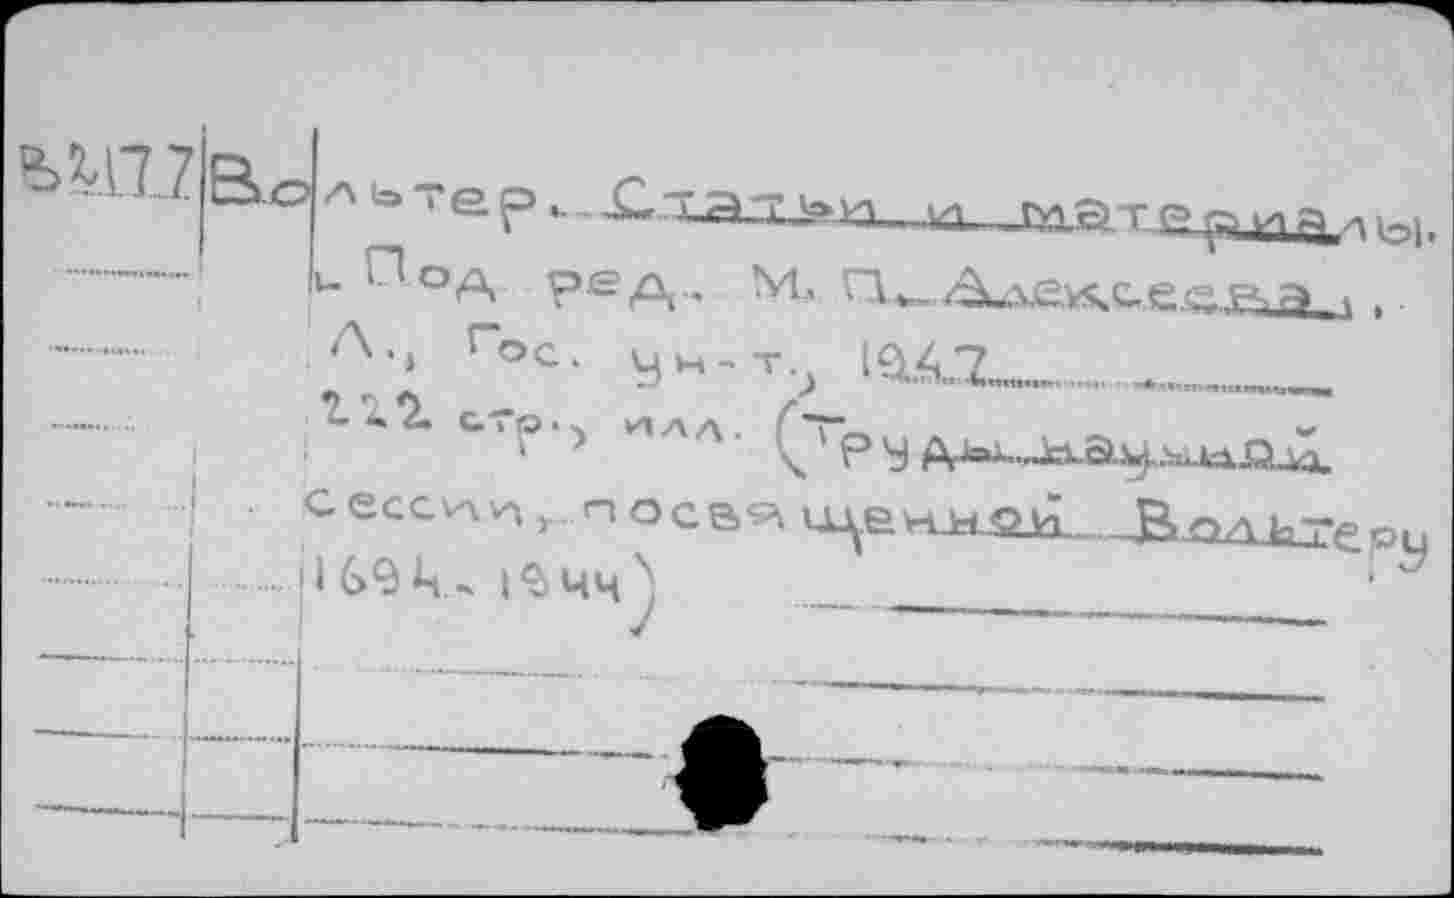 В2177 Вольтер. Статьи и материалы.
Под ред. М. П. Алексеева,.
Л., Гос. ун-т., 1947
222 стр., илл. (Труды научной
сессии, посвященной Вольтеру
1694-1944)